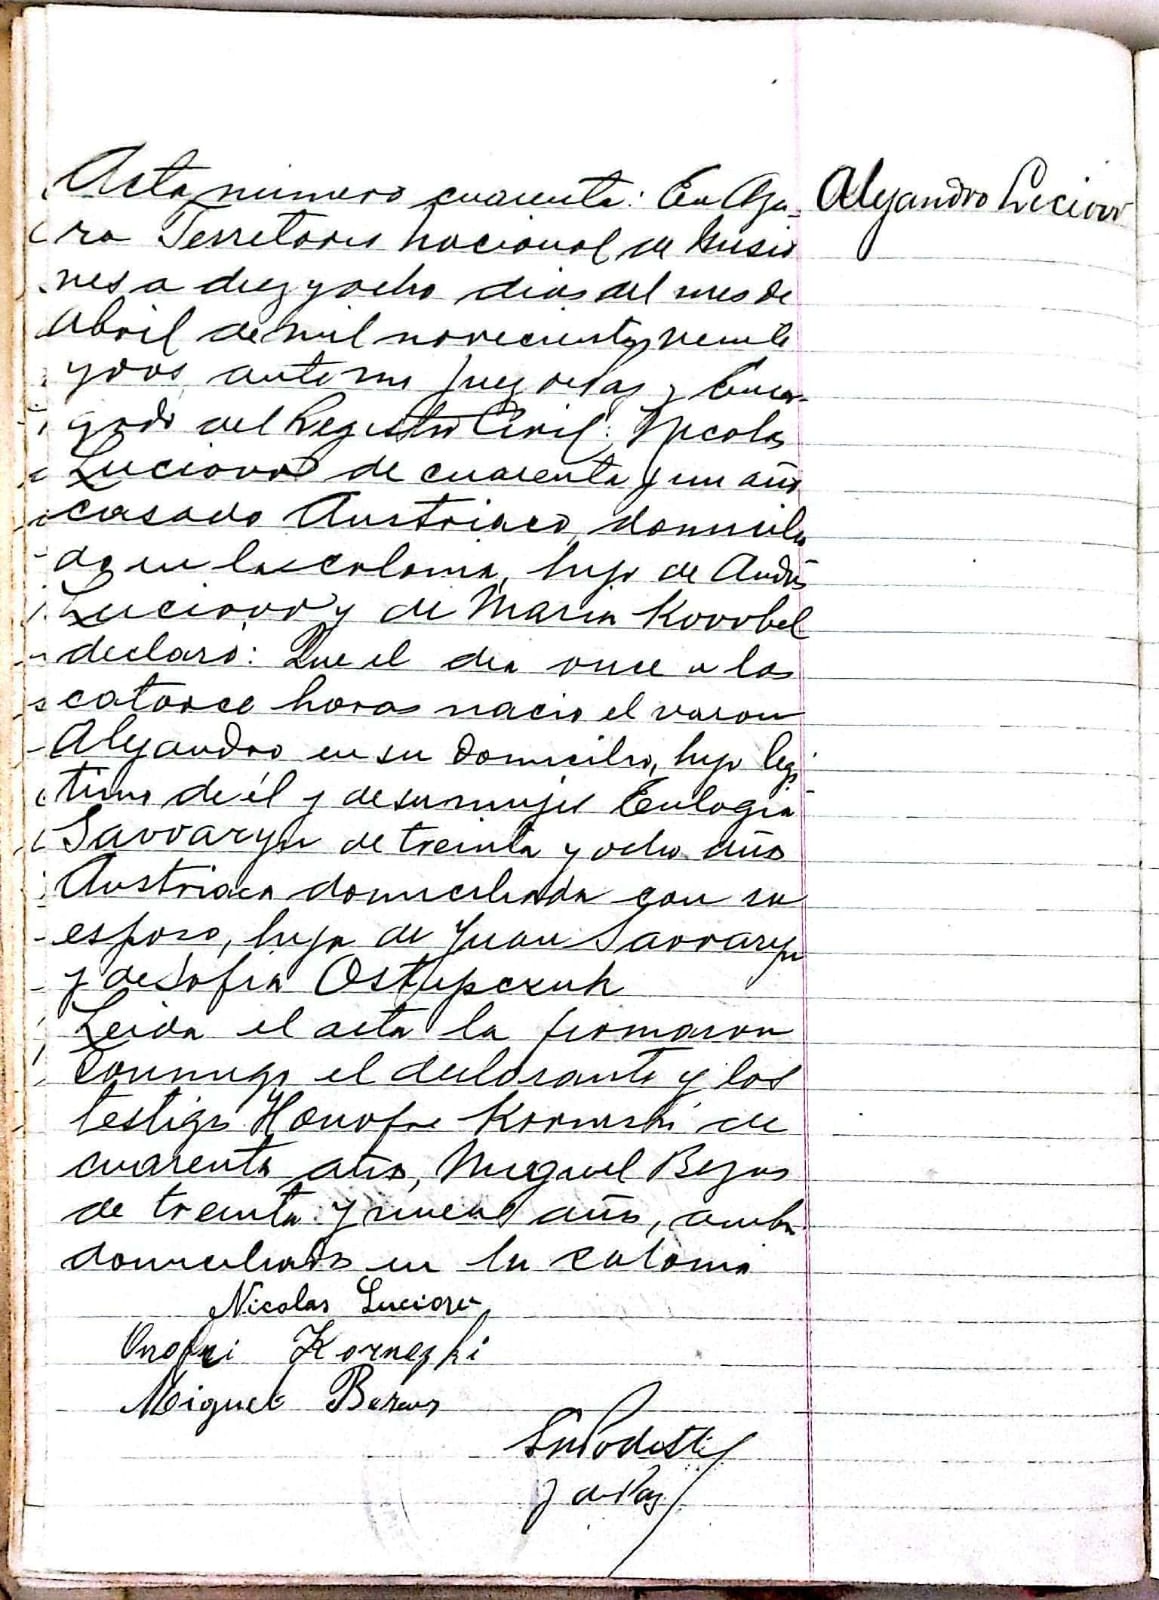 Acta número cuarenta: En Aza-
Alejandro Luciow
ra Territorio Nacional de Misio
nes a diez y ocho dias del mes de
Abril de mil novecientos veinte
y dos, ante mi Juez de Paz y Encar-
gado del Registro Civil: Nicolas
Luciow de cuarenta y un años
casado Austriaco, domicilia
do en la colonia, hijo de Andrés
Luciow y de Maria Korobel
declaró: Que el dia once a las
catorce horas nacio el varon
Alejandro en su domicilio, hijo legi
timo de él y de su mujer Eulogia
Savvaryn de treinta y ocho años
Austriaca domiciliada con su
esposo, hija de Juan Savvaryn
y de Sofia Ostapczuk
Leida el acta la firmaron
conmigo el declarante y los
testigos Honofre de
cuarenta años, Miguel Bezus
de treinta y nueve años, ambos
domiciliados en la colonia
Nicolas Luciow
Onofri
Miguel
Podesti
J de Paz